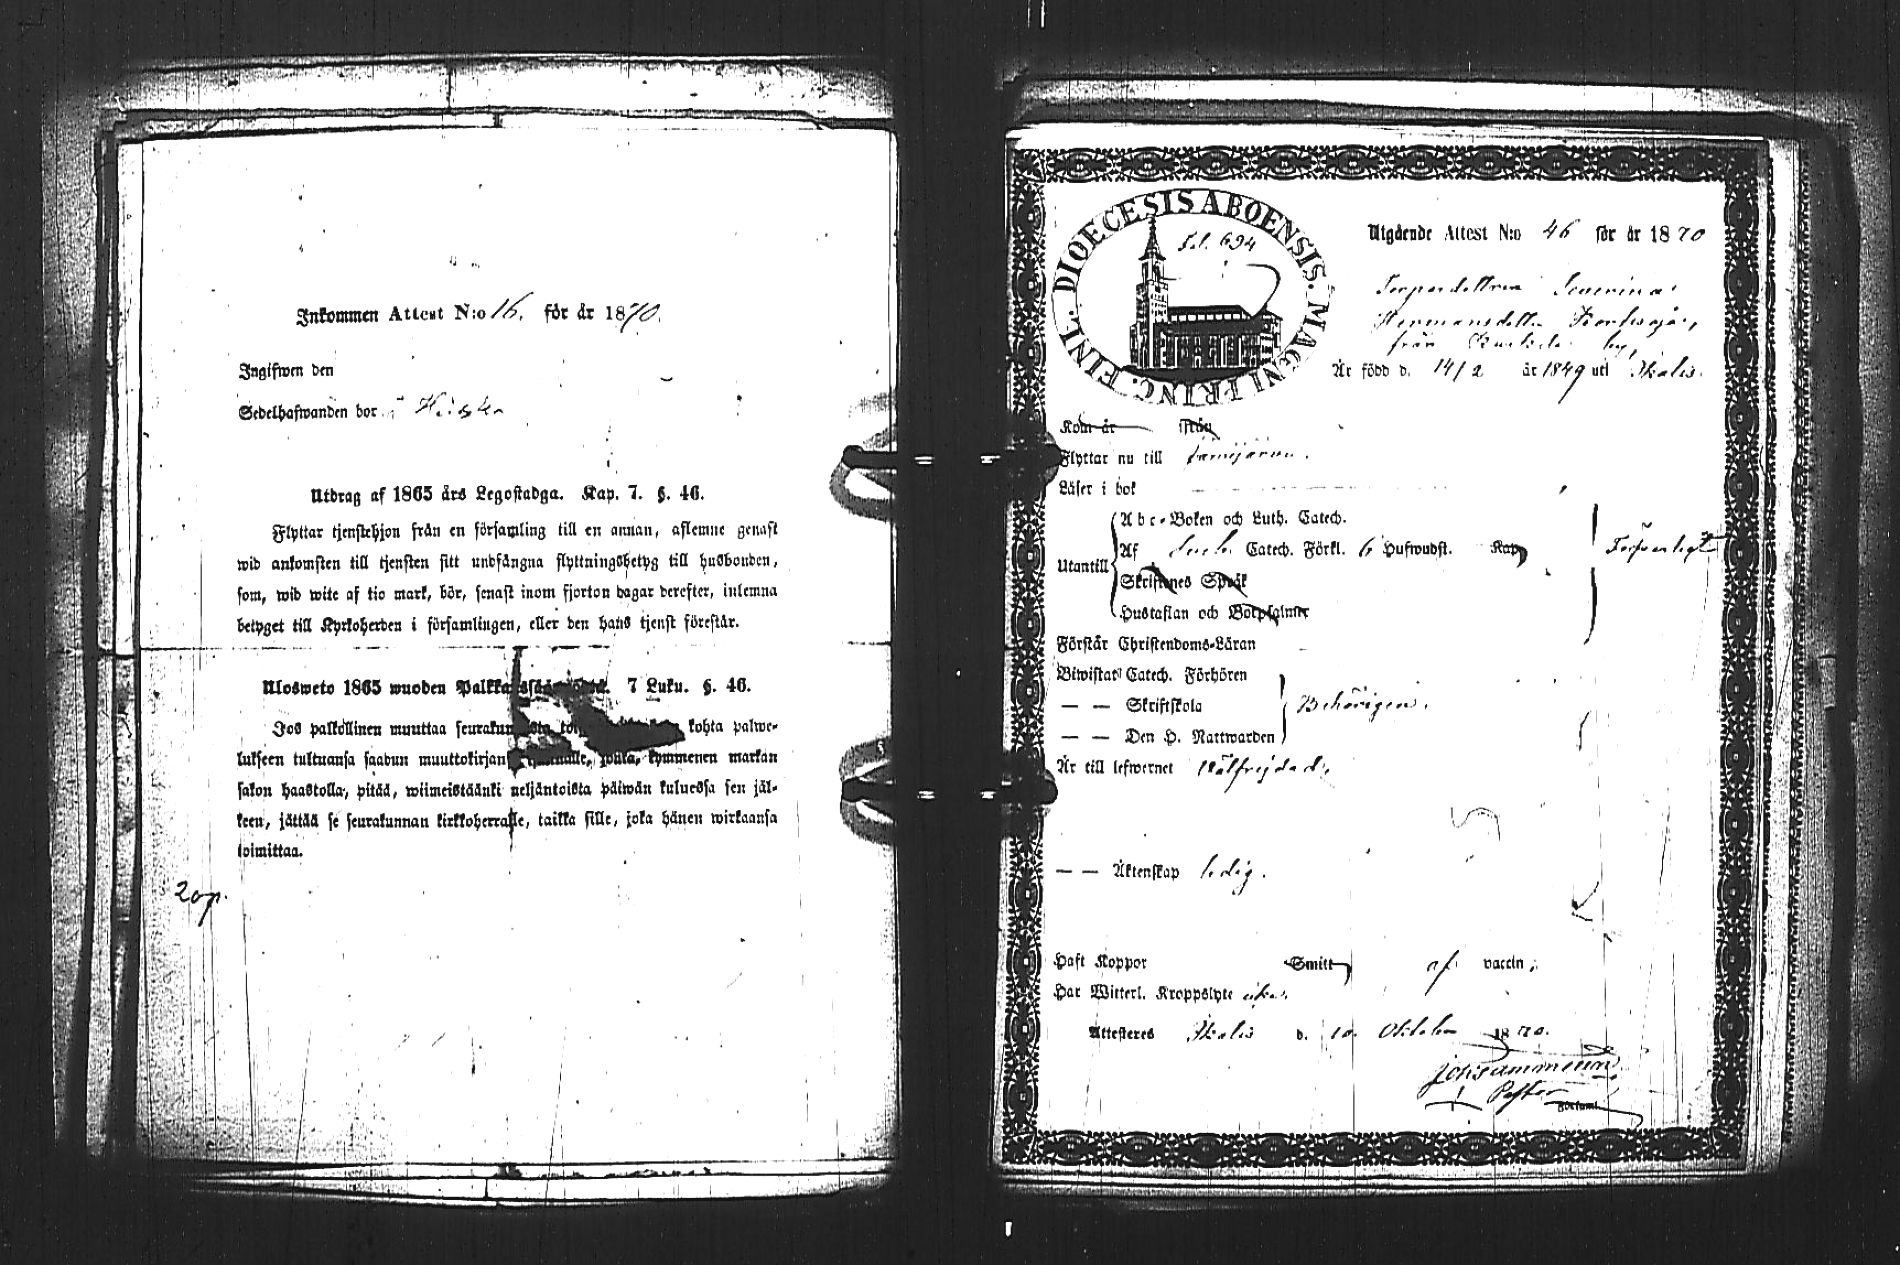 Inkommen Attest N:o 16. för år 1870.
Ingifwen den
Sedelhafwanden bor i
Utdrag af 1865 års Legostadga. Kap. 7. §. 46.
Flyttar tjenstehjon från en församling till en annan, aflemne genast
wid ankomsten till tjensten sitt undfångna flyttningsbetyg till husbonden,
som, wid wite af tio mark, bör, senast inom fjorton dagar derefter, inlemna
betyget till Kyrkoherden i församlingen, eller den hans tjenst förestår.
Ulosweto 1865 wuoden 7 Luku. §. 46.
Jos palkollinen muuttaa kohta palwe-
lukseen tultuansa saadun muuttokirjansa kymmenen markan
sakon haastolla, pitää, wiimeistäänki neljäntoista päiwän kuluessa sen jäl-
keen, jättää se seurakunnan kirkkoherralle, taikka sille, joka hänen wirkaansa
toimittaa.
20p.
DIOECESIS ABOENSIS. MAGNI PRINC. FINL.
Fol. 694
Utgående Attest N:o 46 för år 1870
Severina
Hermansdotter
från by,
Är född d. 14/2 år 1849 uti Ikalis.
Kom år från
Flyttar nu till
Läser i bok
Utantill
Abc-Boken och Luth. Catech.
Af Luth. Catech. Förkl. 6 Hufwudst. Kap.
Skriftenes Språk
Hustaflan och Botpsalmer
Förswarligt
Förstår Christendoms-Läran
Biwistat Catech. Förhören
— — Skriftskola
— — Den H. Nattwarden
Behörigen.
Är till lefwernet Wälfrejdad.
— — Äktenskap ledig.
Haft Koppor Smitt af vaccin.
Har Witterl. Kroppslyte icke.
Attesteras Ikalis d. 10 Oktober 1870.
Pastor
Församl.